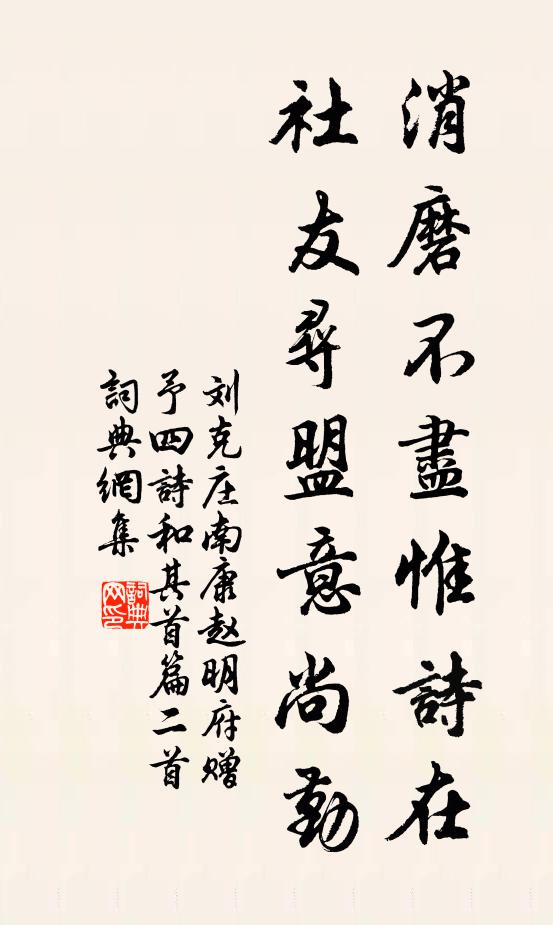 消磨不盡惟詩在
社友尋盟意尚勤
刘克庄南康赵明府赠
予四詩和其首篇二首
詞典網集
詞典
网印